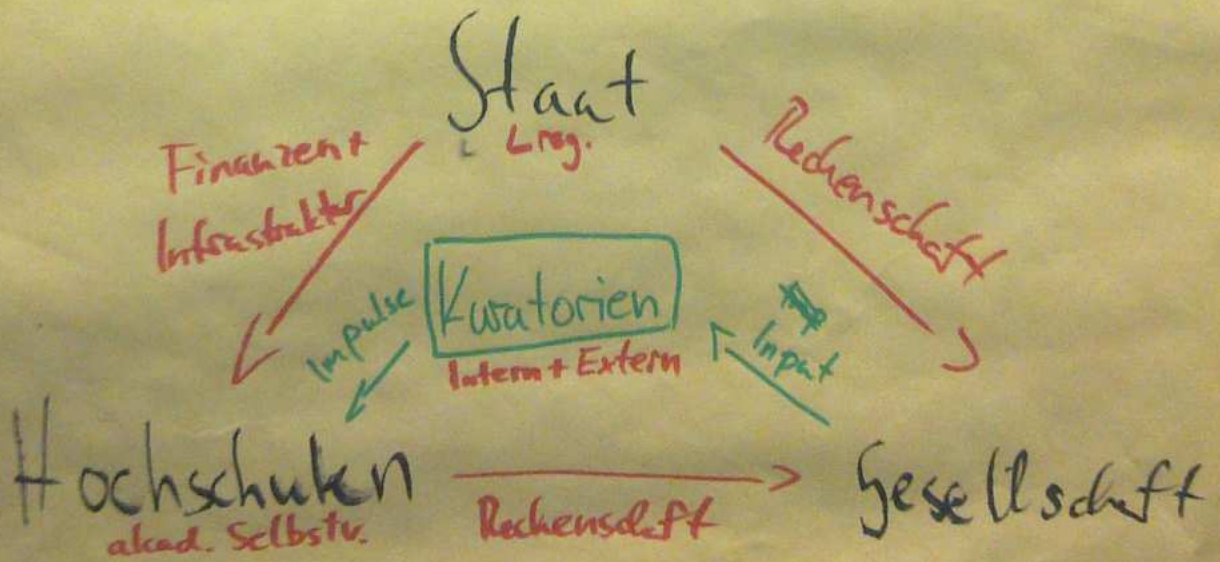 Staat
Lreg.
Finanzen +
Infrastruktur
Rechenschaft
Kuratorien
Intern + Extern
Impulse
Input
Hochschulen
akad. Selbstv.
Rechenschaft
Gesellschaft